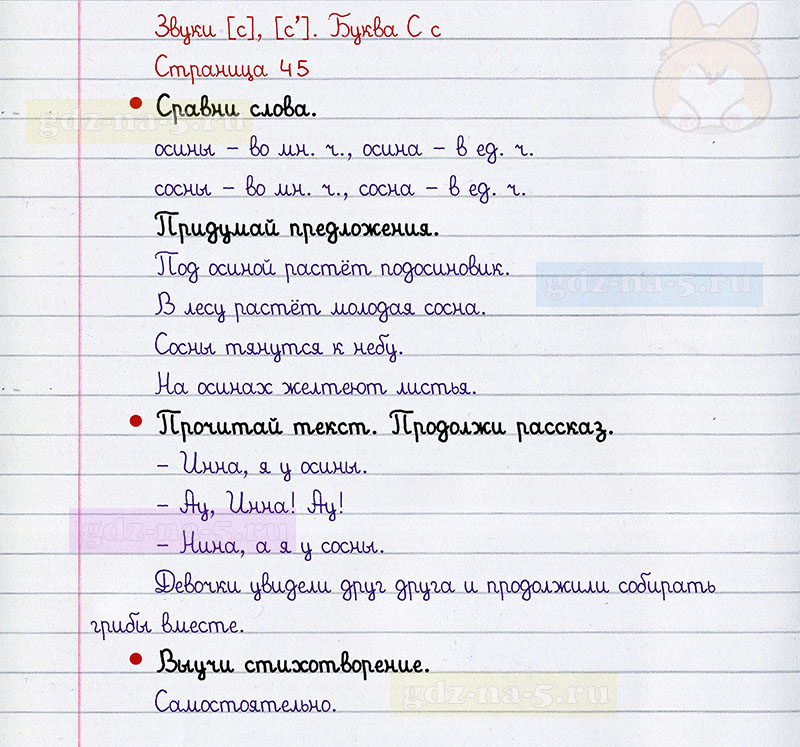 Звуки [с], [с’]. Буква С с
Страница 45
• Сравни слова.
gdz-na-5.ru
осины – во мн. ч., осина – в ед. ч.
сосны – во мн. ч., сосна – в ед. ч.
Придумай предложения.
Под осиной растёт подосиновик.
gdz-na-5.ru
В лесу растёт молодая сосна.
Сосны тянутся к небу.
На осинах желтеют листья.
• Прочитай текст. Продолжи рассказ.
– Инна, я у осины.
– Ау, Инна! Ау!
gdz-na-5.ru
– Нина, а я у сосны.
Девочки увидели друг друга и продолжили собирать
грибы вместе.
• Выучи стихотворение.
gdz-na-5.ru
Самостоятельно.